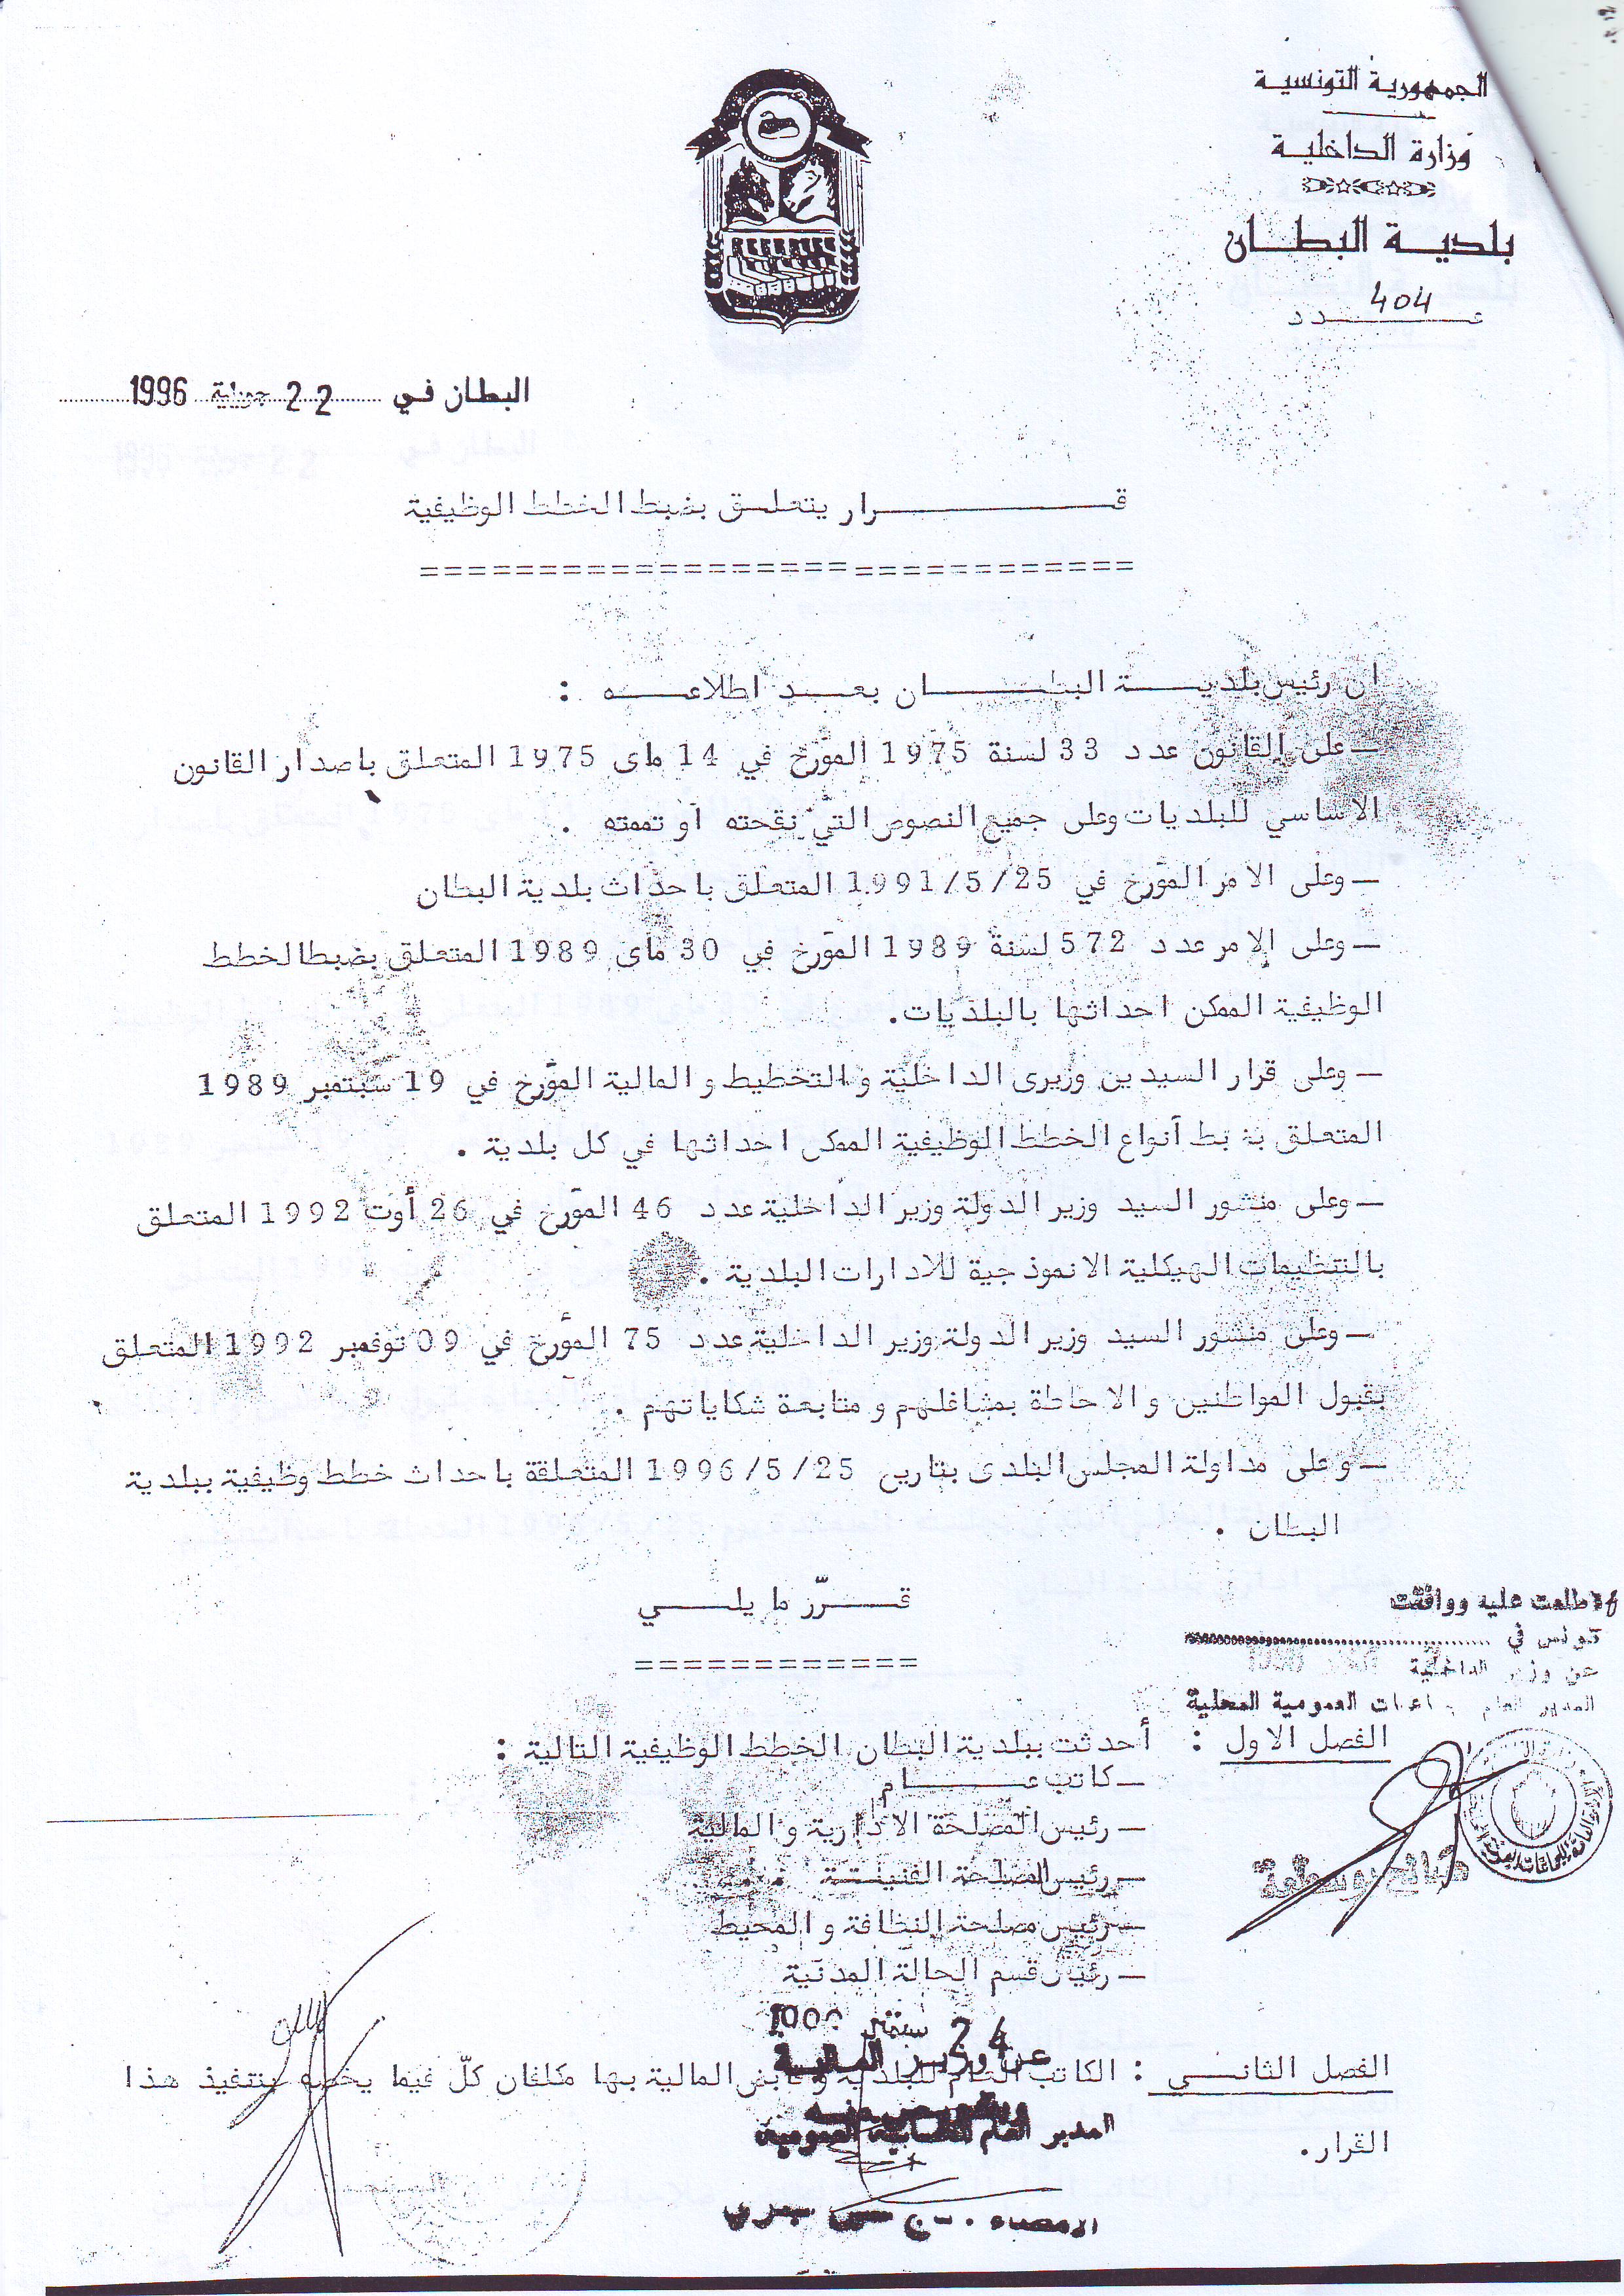 الجمهورية التونسية
وزارة الداخلية
بلدية البطان
404
عدد
البطان في 22 جويلية 1996
قرار يتعلق بضبط الخطط الوظيفية
ان رئيس بلدية البطان بعد اطلاعه :
— على القانون عدد 33 لسنة 1975 المؤرخ في 14 ماى 1975 المتعلق باصدار القانون
الاساسي للبلديات وعلى جميع النصوص التي نقحته أو تممته .
— وعلى الامر المؤرخ في 1991/5/25 المتعلق باحداث بلدية البطان
— وعلى الامر عدد 572 لسنة 1989 المؤرخ في 30 ماى 1989 المتعلق بضبط الخطط
الوظيفية الممكن احداثها بالبلديات.
— وعلى قرار السيدين وزيرى الداخلية والتخطيط والمالية المؤرخ في 19 سبتمبر 1989
المتعلق بضبط أنواع الخطط الوظيفية الممكن احداثها في كل بلدية .
— وعلى منشور السيد وزير الدولة وزير الداخلية عدد 46 المؤرخ في 26 أوت 1992 المتعلق
بالتنظيمات الهيكلية الانموذجية للادارات البلدية .
— وعلى منشور السيد وزير الدولة وزير الداخلية عدد 75 المؤرخ في 09 نوفمبر 1992 المتعلق
بقبول المواطنين والاحاطة بمشاغلهم ومتابعة شكاياتهم .
— وعلى مداولة المجلس البلدى بتاريخ 1996/5/25 المتعلقة باحداث خطط وظيفية ببلدية
البطان .
قرّر ما يلي
اطلعت عليه ووافقت
تونس في
عن وزير الداخلية
المدير العام للجماعات العمومية المحلية
الفصل الاول : أحدثت ببلدية البطان الخطط الوظيفية التالية :
— كاتب عام
— رئيس المصلحة الادارية والمالية
— رئيس المصلحة الفنية
— رئيس مصلحة النظافة والمحيط
— رئيس قسم الحالة المدنية
24 سبتمبر
عن وزير المالية
الفصل الثاني : الكاتب العام للبلدية وقابض المالية بها مكلفان كلّ فيما يخصه بتنفيذ هذا
وبتفويض منه
المدير العام للمحاسبة العمومية
القرار.
الامضاء